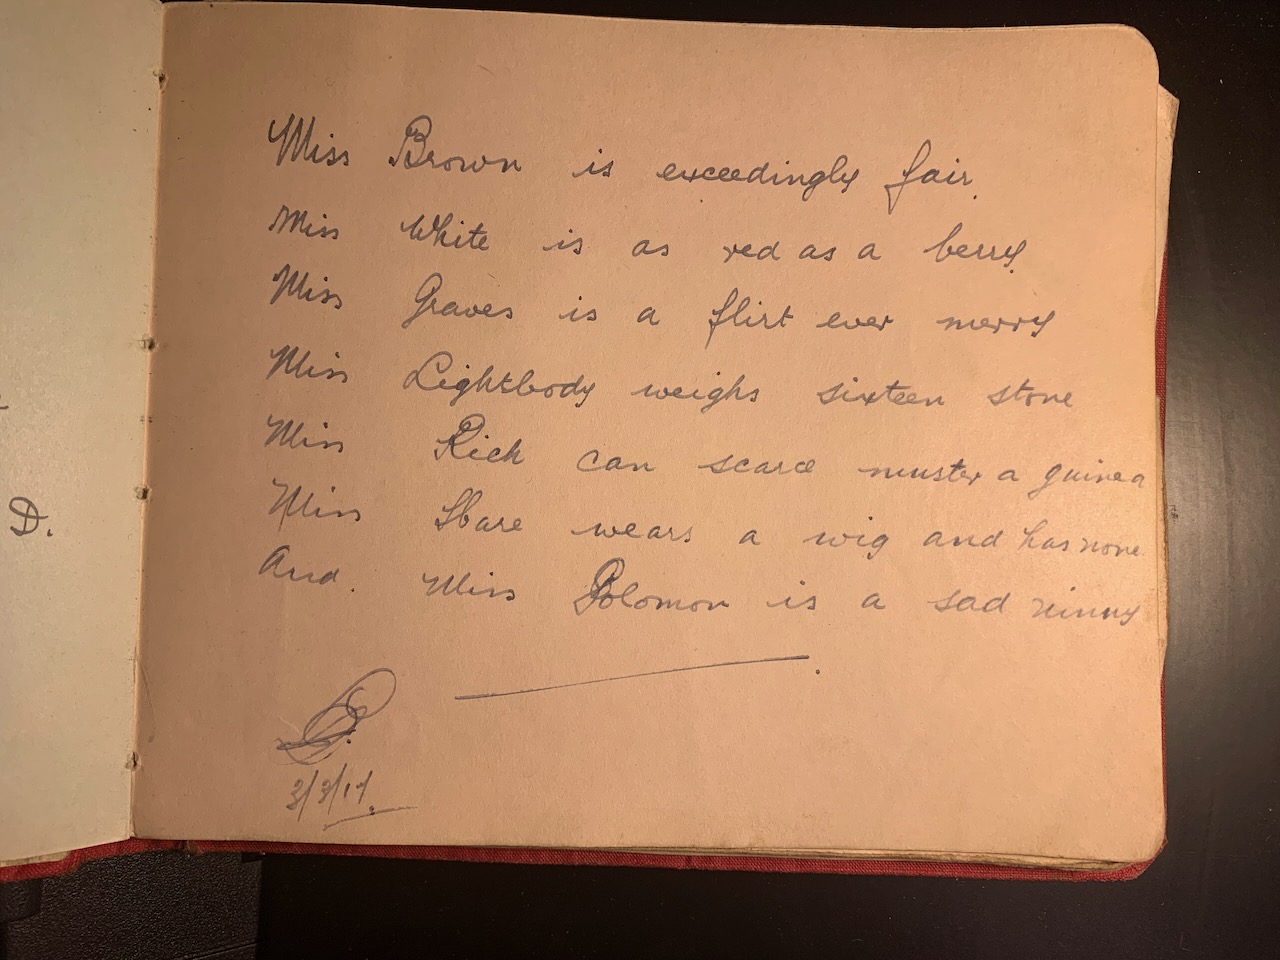 D.
Miss Brown is exceedingly fair.
Miss White is as red as a berry.
Miss Graves is a flirt ever merry
Miss Lightbody weighs sixteen stone
Miss Rich can scarce muster a guinea
Miss Hare wears a wig and has none
And. Miss Solomon is a sad ninny
3/3/17.